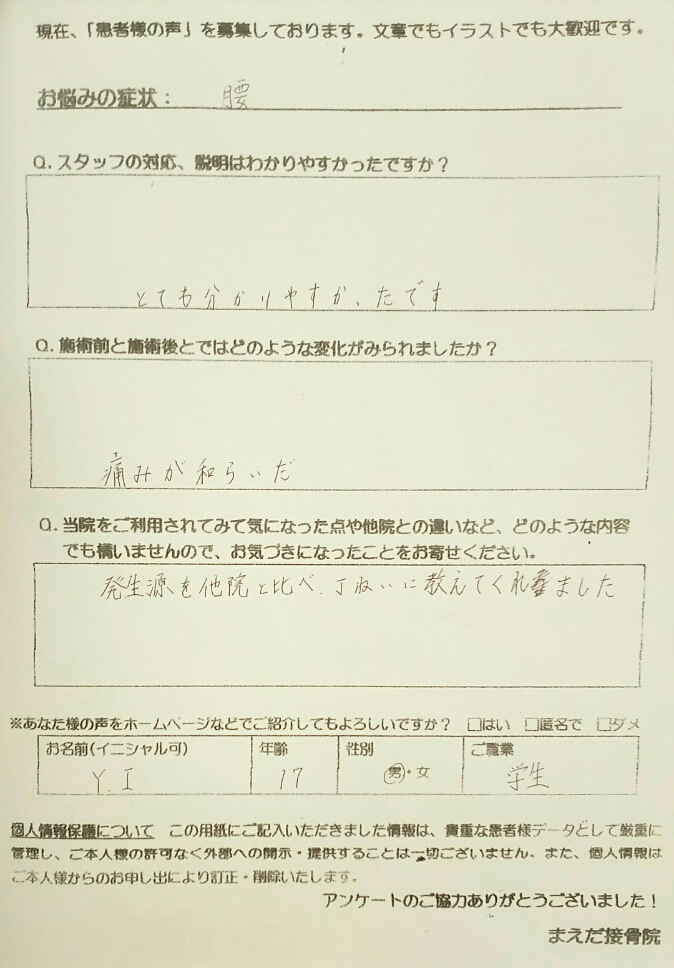 現在、「患者様の声」を募集しております。文章でもイラストでも大歓迎です。
お悩みの症状： 腰
Q. スタッフの対応、説明はわかりやすかったですか？
とても分かりやすかったです
Q. 施術前と施術後とではどのような変化がみられましたか？
痛みが和らいだ
Q. 当院をご利用されてみて気になった点や他院との違いなど、どのような内容
でも構いませんので、お気づきになったことをお寄せください。
発生源を他院と比べ、丁ねいに教えてくれました
※あなた様の声をホームページなどでご紹介してもよろしいですか？ □はい □匿名で □ダメ
お名前(イニシャル可) 年齢 性別 ご職業
Y.I 17 男・女 学生
個人情報保護について この用紙にご記入いただきました情報は、貴重な患者様データとして厳重に
管理し、ご本人様の許可なく外部への開示・提供することは一切ございません。また、個人情報は
ご本人様からのお申し出により訂正・削除いたします。
アンケートのご協力ありがとうございました！
まえだ接骨院